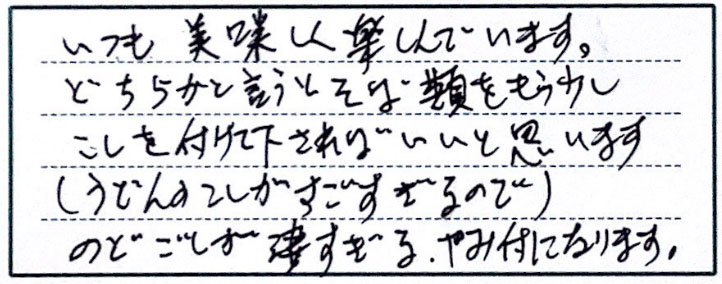 いつも美味しく楽しんでいます。
どちらかと言うとそば類をもう少し
こしを付けて下さればいいと思います
(うどんのこしがすごすぎるので)
のどごしが凄すぎる、やみ付になります。